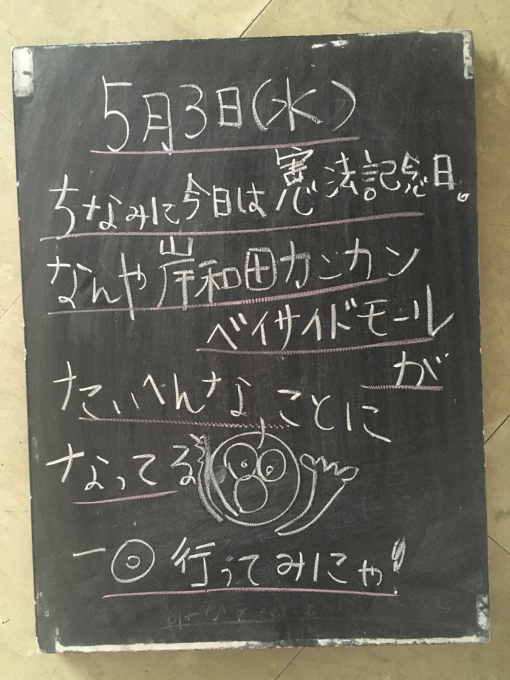 5月3日(水)
ちなみに今日は憲法記念日。
なんや岸和田カンカン
ベイサイドモール
が
たいへんな、ことに
なってる
一回行ってみにゃ!